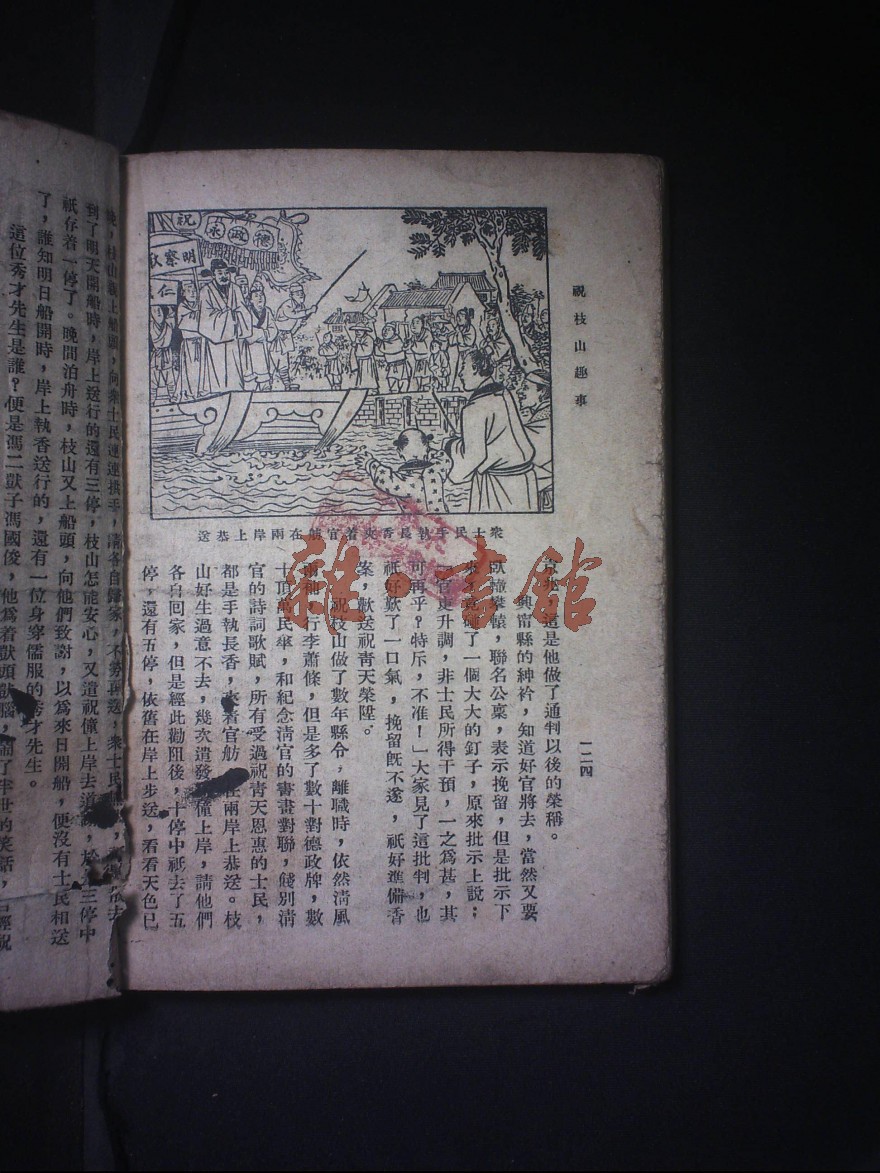 祝枝山趣事
一二四
祝
德政永
明察秋
仁
衆士民手執長香夾着官舫在兩岸上恭送
京兆，這是他做了通判以後的榮稱。
興甯縣的紳衿，知道好官將去，當然又要
臥轍攀轅，聯名公稟，表示挽留，但是批示下
來，竟碰了一個大大的釘子，原來批示上說；
「官吏升調，非士民所得干預，一之爲甚，其
可再乎？特斥，不准！」大家見了這批判，也
祇好歎了一口氣，挽留旣不遂，祇好準備香
案，歡送祝靑天榮陞。
祝枝山做了數年縣令，離職時，依然淸風
兩袖，行李蕭條，但是多了數十對德政牌，數
十頂萬民傘，和紀念淸官的書畫對聯，餞別淸
官的詩詞歌賦，所有受過祝靑天恩惠的士民，
都是手執長香，夾着官舫，在兩岸上恭送。枝
山好生過意不去，幾次遣發祝僮上岸，請他們
各自回家，但是經此勸阻後，十停中祇去了五
停，還有五停，依舊在岸上步送，看看天色已
晚，枝山親上船頭，向衆士民連連拱手，請各自歸家，不勞再送，衆士民
到了明天開船時，岸上送行的還有三停，枝山怎能安心，又遣祝僮上岸去道謝，於是三停中
祇存着一停了。晚間泊舟時，枝山又上船頭，向他們致謝，以爲來日開船，便沒有士民相送
了，誰知明日船開時，岸上執香送行的，還有一位身穿儒服的秀才先生。
這位秀才先生是誰？便是馮二獃子馮國俊，他爲着獃頭獃腦，鬧了半世的笑話，已經祝
雜·書館